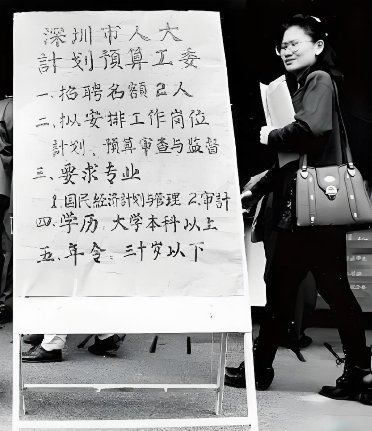 深圳市人大
計划預算工委
一、招聘名額2人
二、拟安排工作岗位
計划、預算审查与监督
三、要求专业
1.国民经济計划与管理 2.审計
四、学历:大学本科以上
五、年令:三十岁以下